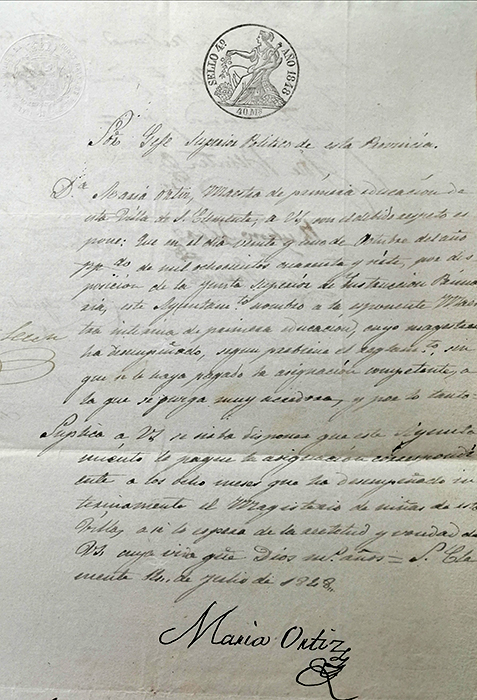 SELLO 4º AÑO 1848
40 Ms
Sor. Gefe Superior Politico de esta Provincia.
Dª Maria Ortiz, Maestra de primera educacion de
esta Villa de S. Clemente, a VS. con el debido respeto es
pone: Que en el dia veinte y uno de Octubre del año
pp.do de mil ochocientos cuarenta y siete, por dis
posicion de la Junta Superior de Instruccion Prima
ria, este Ayuntam.to nombró a la esponente Maes
tra interina de primera educacion, cuyo magisterio
ha desempeñado, segun previene el reglam.to, sin
que se le haya pagado la asignacion competente, a
la que se juzga muy acredora, y por lo tanto=
Suplica a VS. se sirva disponer que este Ayunta
miento le pague la asignacion correspondi
ente a los ocho meses que ha desempeñado in
terinamente el Magisterio de niñas de esta
Villa, asi lo espera de la rectitud y bondad de
VS. cuya vida gue Dios ms. años = S. Cle
mente 14 de Julio de 1848
Maria Ortiz